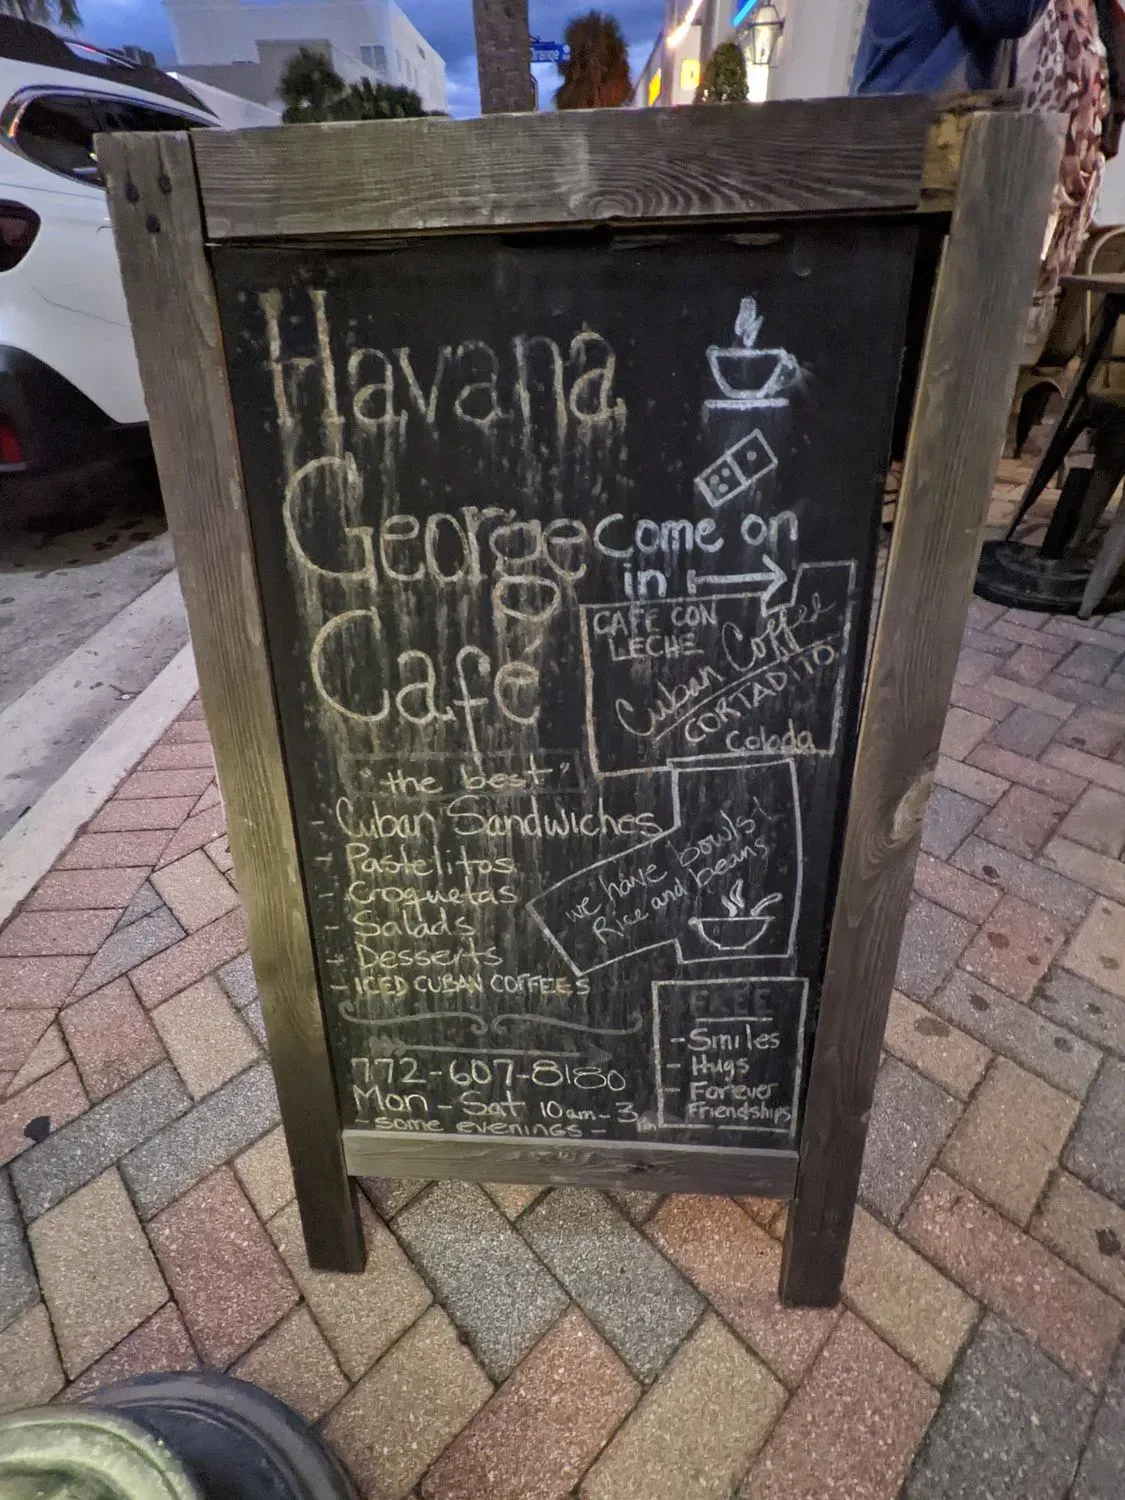 Havana
George
Café
come on
in
CAFE CON
LECHE
Cuban Coffee
CORTADITO
Colada
"the best"
- Cuban Sandwiches
- Pastelitos
- Croquetas
- Salads
- Desserts
- ICED CUBAN COFFEES
we have bowls!
Rice and beans
772-607-8180
Mon - Sat 10am-3pm
- some evenings -
FREE
- Smiles
- Hugs
- Forever
Friendships